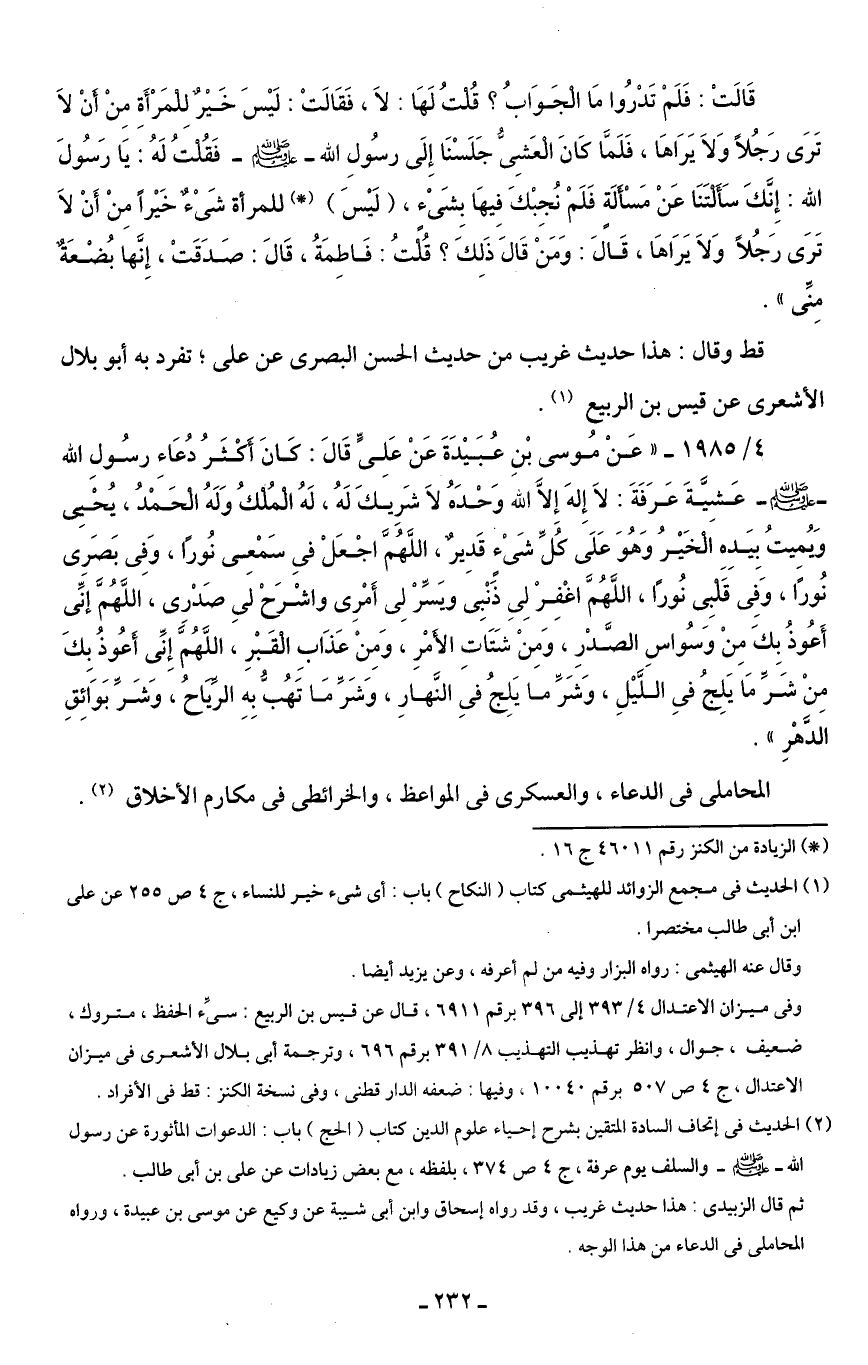 قَالَتْ : فَلَمْ تَدْرُوا مَا الْجَوَابُ ؟ قُلْتُ لَهَا : لاَ ، فَقَالَتْ : لَيْسَ خَيْرٌ للْمَرْأَةِ مِنْ أَنْ لاَ
تَرَى رَجُلاً وَلاَ يَرَاهَا ، فَلَمَّا كَانَ الْعَشِىُّ جَلَسْنَا إِلَى رسُولِ الله ـ ﷺ ـ فَقُلْتُ لَهُ : يَا رَسُولَ
الله : إِنَّكَ سَأَلْتَنَا عَنْ مَسْأَلَةٍ فَلَمْ نُجِبْكَ فِيهَا بِشَىْءٍ ، ( لَيْسَ ) (*) للمرأة شَىْءٌ خَيْراً مِنْ أَنْ لاَ
تَرَى رَجُلاً وَلاَ يَرَاهَا ، قَالَ : وَمَنْ قَالَ ذَلِكَ ؟ قُلْتُ : فَاطِمَةُ ، قَالَ : صَدَقَتْ ، إِنَّها بُضْعَةٌ
مِنِّى » .
قط وقال : هذا حديث غريب من حديث الحسن البصرى عن على ؛ تفرد به أبو بلال
الأشعرى عن قيس بن الربيع (١) .
٤/ ١٩٨٥ ـ « عَنْ مُوسى بْنِ عُبَيْدَةَ عَنْ عَلىٍّ قَالَ : كَانَ أَكْثَرُ دُعَاءِ رسُولِ الله
ـ ﷺ ـ عَشيَّةَ عَرَفَةَ : لاَ إِلهَ إِلاَّ الله وَحْدَهُ لاَ شَرِيكَ لَهُ ، لَهُ الْمُلْكُ وَلَهُ الْحَمْدُ ، يُحْيِى
وَيُمِيتُ بِيَدِهِ الْخَيْرُ وَهُوَ عَلَى كُلِّ شَىْءٍ قَدِيرٌ ، اللَّهُمَّ اجْعَلْ فِى سَمْعِى نُورًا ، وَفِى بَصَرِى
نُورًا ، وَفِى قَلْبِى نُورًا ، اللَّهُمَّ اغْفِرْ لِى ذَنْبِى ويَسِّرْ لِى أَمْرِى واشْرَحْ لِى صَدْرِى ، اللَّهُمَّ إِنِّى
أَعُوذُ بِكَ مِنْ وَسْوَاسِ الصَّدْرِ ، وَمِنْ شَتَاتِ الأَمْرِ ، وَمِنْ عَذَابِ الْقَبْرِ ، اللَّهُمَّ إِنِّى أَعُوذُ بِكَ
مِنْ شَرِّ مَا يَلِجُ فِى اللَّيْلِ ، وَشَرِّ ما يَلِجُ فِى النَّهارِ ، وَشَرِّ مَا تَهُبُّ بِهِ الرِّيَاحُ ، وَشَرِّ بَوَائِقِ
الدَّهْرِ » .
المحاملى فى الدعاء ، والعسكرى فى المواعظ ، والخرائطى فى مكارم الأخلاق (٢) .
(*) الزيادة من الكنز رقم ٤٦٠١١ ج ١٦ .
(١) الحديث فى مجمع الزوائد للهيثمى كتاب ( النكاح ) باب : أى شىء خير للنساء ، ج ٤ ص ٢٥٥ عن على
ابن أبى طالب مختصرا .
وقال عنه الهيثمى : رواه البزار وفيه من لم أعرفه ، وعن يزيد أيضا .
وفى ميزان الاعتدال ٤/ ٣٩٣ إلى ٣٩٦ برقم ٦٩١١ ، قال عن قيس بن الربيع : سىِّء الحفظ ، متروك ،
ضعيف ، جوال ، وانظر تهذيب التهذيب ٨/ ٣٩١ برقم ٦٩٦ ، وترجمة أبى بلال الأشعرى فى ميزان
الاعتدال ، ج ٤ ص ٥٠٧ برقم ١٠٠٤٠ ، وفيها : ضعفه الدار قطنى ، وفى نسخة الكنز : قط فى الأفراد .
(٢) الحديث فى إتحاف السادة المتقين بشرح إحياء علوم الدين كتاب ( الحج ) باب : الدعوات المأثورة عن رسول
الله ـ ﷺ ـ والسلف يوم عرفة ، ج ٤ ص ٣٧٤ ، بلفظه ، مع بعض زيادات عن على بن أبى طالب .
ثم قال الزبيدى : هذا حديث غريب ، وقد رواه إسحاق وابن أبى شيبة عن وكيع عن موسى بن عبيدة ، ورواه
المحاملى فى الدعاء من هذا الوجه .
ـ ٢٣٢ ـ